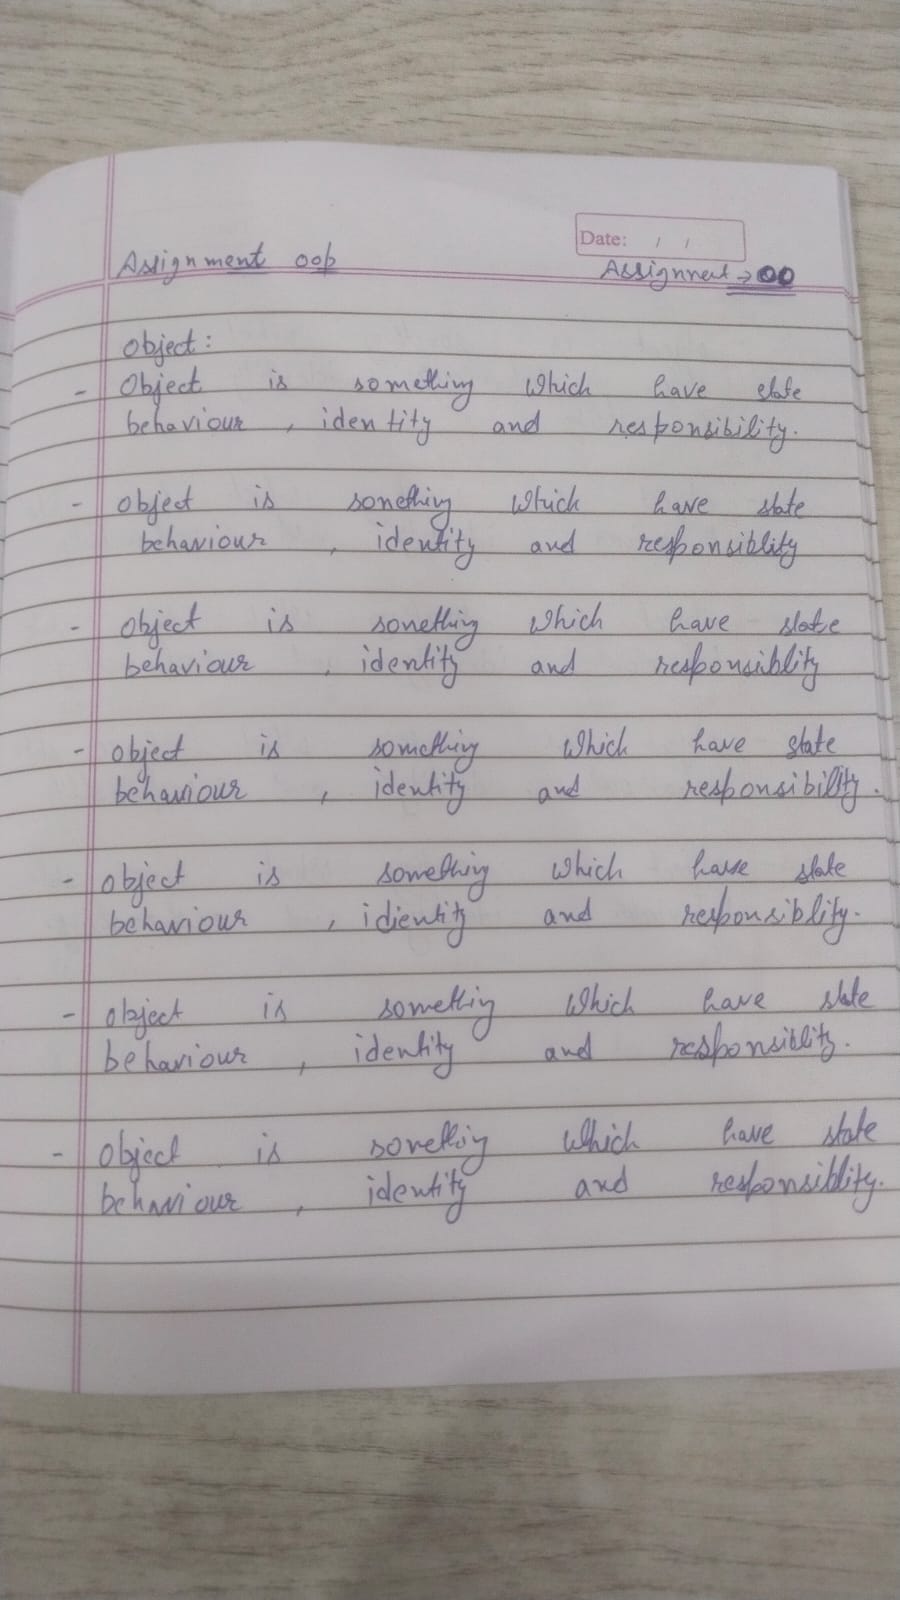 Date: / /
Assignment oop
Assignment → 00
object:
- Object is something which have state
behaviour , identity and responsibility.
- object is something which have state
behaviour , identity and responsiblity
- object is something which have state
behaviour , identity and responsiblity
- object is something which have state
behaviour , identity and responsibility.
- object is something which have state
behaviour , identity and responsiblity.
- object is something which have state
behaviour , identity and responsiblity.
- object is something which have state
behaviour , identity and responsiblity.